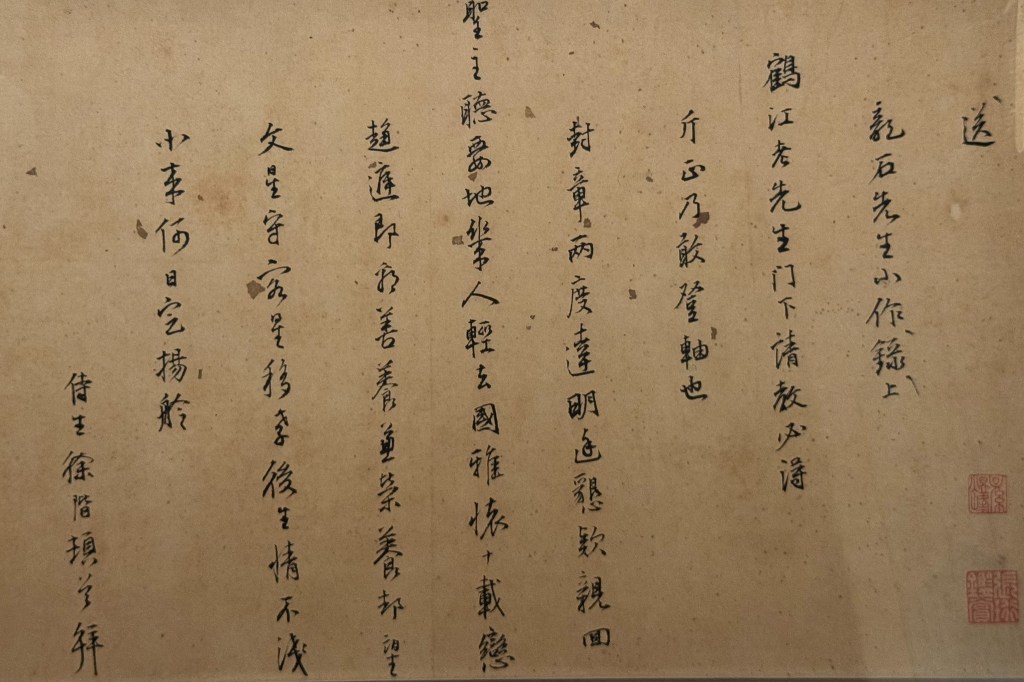 送
龍石先生小作錄上
鶴江老先生門下請教必得
斤正乃敢登軸也
封章兩度達明廷懇款親回
聖主聽要地幾人輕去國雅懷十載戀
趨庭即看善養兼榮養却望
文星守客星移孝後生情不淺
小東何日定揚舲
侍生徐階頓首拜